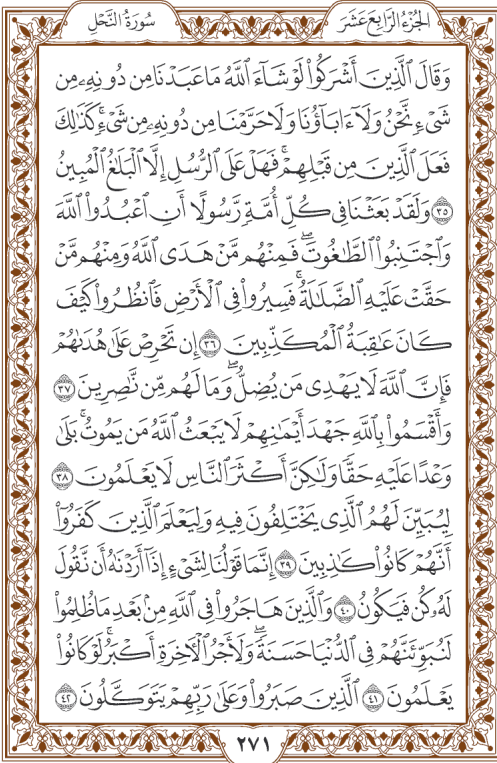 الجُزْءُ الرَّابِعَ عَشَرَ
سُورَةُ النَّحْلِ
وَقَالَ ٱلَّذِينَ أَشْرَكُوا۟ لَوْ شَآءَ ٱللَّهُ مَا عَبَدْنَا مِن دُونِهِۦ مِن
شَىْءٍ نَّحْنُ وَلَآ ءَابَآؤُنَا وَلَا حَرَّمْنَا مِن دُونِهِۦ مِن شَىْءٍ ۚ كَذَٰلِكَ
فَعَلَ ٱلَّذِينَ مِن قَبْلِهِمْ ۚ فَهَلْ عَلَى ٱلرُّسُلِ إِلَّا ٱلْبَلَٰغُ ٱلْمُبِينُ
٣٥ وَلَقَدْ بَعَثْنَا فِى كُلِّ أُمَّةٍ رَّسُولًا أَنِ ٱعْبُدُوا۟ ٱللَّهَ
وَٱجْتَنِبُوا۟ ٱلطَّٰغُوتَ ۖ فَمِنْهُم مَّنْ هَدَى ٱللَّهُ وَمِنْهُم مَّنْ
حَقَّتْ عَلَيْهِ ٱلضَّلَٰلَةُ ۚ فَسِيرُوا۟ فِى ٱلْأَرْضِ فَٱنظُرُوا۟ كَيْفَ
كَانَ عَٰقِبَةُ ٱلْمُكَذِّبِينَ ٣٦ إِن تَحْرِصْ عَلَىٰ هُدَىٰهُمْ
فَإِنَّ ٱللَّهَ لَا يَهْدِى مَن يُضِلُّ ۖ وَمَا لَهُم مِّن نَّٰصِرِينَ ٣٧
وَأَقْسَمُوا۟ بِٱللَّهِ جَهْدَ أَيْمَٰنِهِمْ ۙ لَا يَبْعَثُ ٱللَّهُ مَن يَمُوتُ ۚ بَلَىٰ
وَعْدًا عَلَيْهِ حَقًّا وَلَٰكِنَّ أَكْثَرَ ٱلنَّاسِ لَا يَعْلَمُونَ ٣٨
لِيُبَيِّنَ لَهُمُ ٱلَّذِى يَخْتَلِفُونَ فِيهِ وَلِيَعْلَمَ ٱلَّذِينَ كَفَرُوٓا۟
أَنَّهُمْ كَانُوا۟ كَٰذِبِينَ ٣٩ إِنَّمَا قَوْلُنَا لِشَىْءٍ إِذَآ أَرَدْنَٰهُ أَن نَّقُولَ
لَهُۥ كُن فَيَكُونُ ٤٠ وَٱلَّذِينَ هَاجَرُوا۟ فِى ٱللَّهِ مِنۢ بَعْدِ مَا ظُلِمُوا۟
لَنُبَوِّئَنَّهُمْ فِى ٱلدُّنْيَا حَسَنَةً ۖ وَلَأَجْرُ ٱلْأَخِرَةِ أَكْبَرُ ۚ لَوْ كَانُوا۟
يَعْلَمُونَ ٤١ ٱلَّذِينَ صَبَرُوا۟ وَعَلَىٰ رَبِّهِمْ يَتَوَكَّلُونَ ٤٢
٢٧١